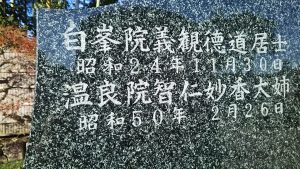 白峯院義親徳道居士
昭和24年11月30日
温良院智仁妙杏大姉
昭和50年 2月26日